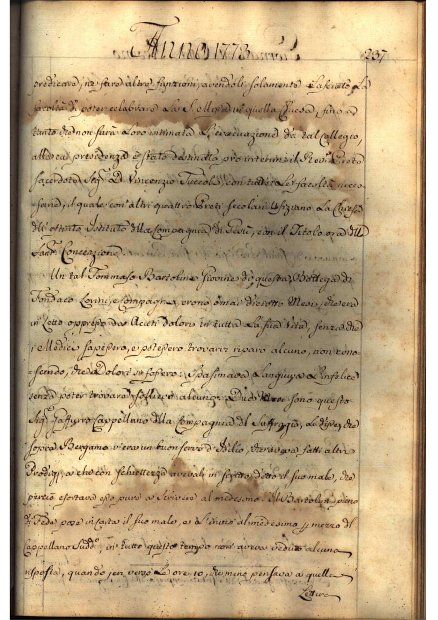 Anno 1773
237
predicare, ne fare altre funzioni, avendoli solamente lasciato la
facoltà di poter celebrare la S. Messa in quella Chiesa, fino a
tanto che non sarà loro intimata l'evacuazione da tal Collegio,
alla cui presidenza è stato destinato pro interim il Rev. Prete
Sacerdote Sig. D. Vincenzio con tutte le facoltà neces
sarie, il quale con altri quattro Preti secolari Uffiziano la Chiesa
dell' estinto Istituto della Compagnia di Gesù, con il Titolo ora della
Sant. Concezione.
Un tal Tommaso Bartolini Giovine di questa Bottega di
Fondaco e Compagni, erono omai diciotto Mesi, che era
in Letto oppresso da Acuti dolori in tutta la sua Vita, senza che
i Medici sapessero, e potessero trovarvi riparo alcuno, non cono
scendo, che Dolori si fossero. Spasimava e Languiva l'Infelice
senza poter trovare sollievo alcuno. Due sono questo
Sig. Cappellano della Compagnia del Suffragio, li disse, che
sopra Bergamo v'era un buon servo d'Iddio, che aveva fatti altri
Prodigj, e che con schiettezza avevali in scritto detto il suo male, che
perciò esortava esso pure a scrivere al medesimo. Il Bartolini pieno
di Fede pose in carta il suo male, e al medesimo per mezzo del
Cappellano Sudd. in tutto questo tempo non aveva veduto alcuna
risposta, quando jeri verso le ore 10, che meno pensava a quella
Lettera